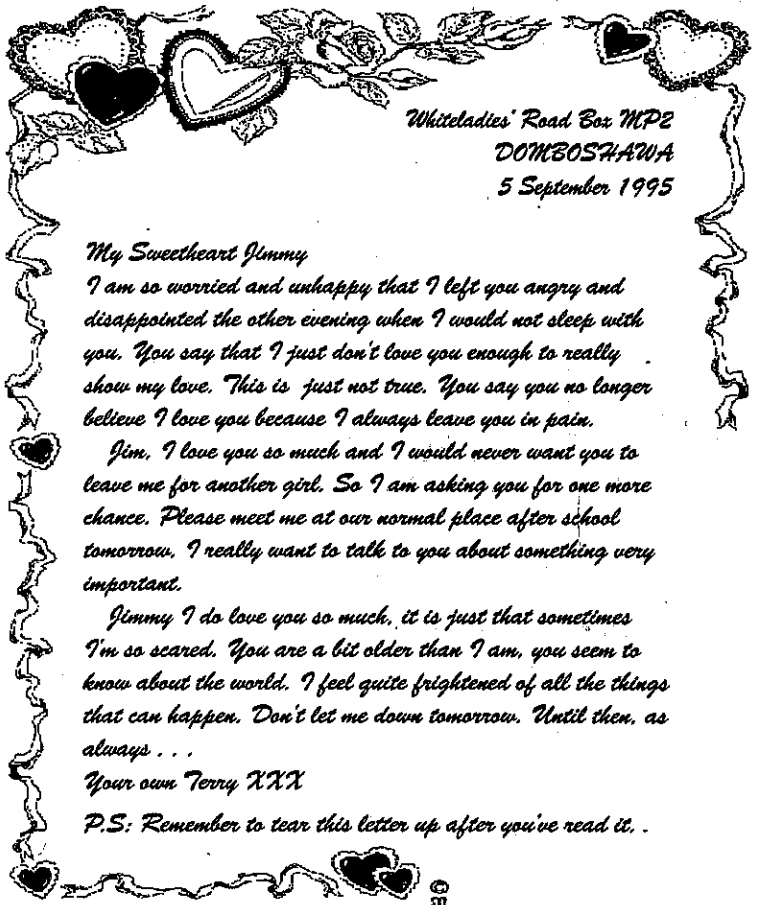 Whiteladies' Road Box MP2
DOMBOSHAWA
5 September 1995
My Sweetheart Jimmy
I am so worried and unhappy that I left you angry and
disappointed the other evening when I would not sleep with
you. You say that I just don't love you enough to really
show my love. This is just not true. You say you no longer
believe I love you because I always leave you in pain.
Jim, I love you so much and I would never want you to
leave me for another girl. So I am asking you for one more
chance. Please meet me at our normal place after school
tomorrow, I really want to talk to you about something very
important.
Jimmy I do love you so much, it is just that sometimes
I'm so scared. You are a bit older than I am, you seem to
know about the world. I feel quite frightened of all the things
that can happen. Don't let me down tomorrow. Until then, as
always . . .
Your own Terry XXX
P.S: Remember to tear this letter up after you've read it. .